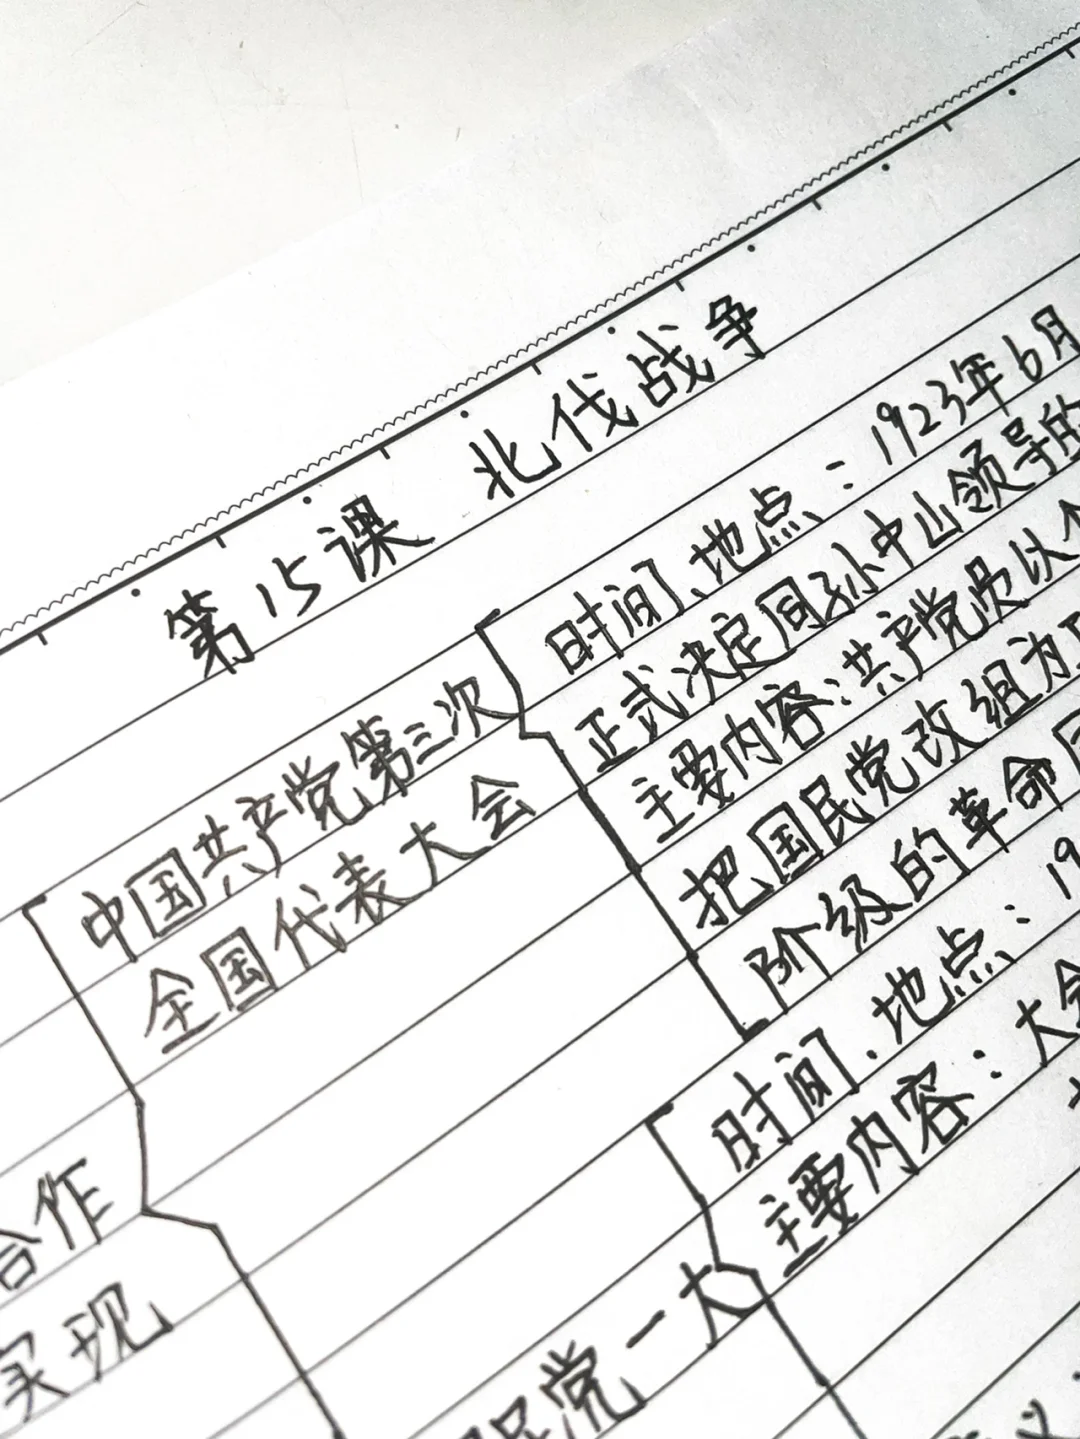 第15课 北伐战争
时间、地点：1923年6月
正式决定同孙中山领导的
主要内容：共产党员以个
把国民党改组为
阶级的革命
中国共产党第三次
全国代表大会
时间、地点：19
主要内容：大会
合作
实现
民党一大